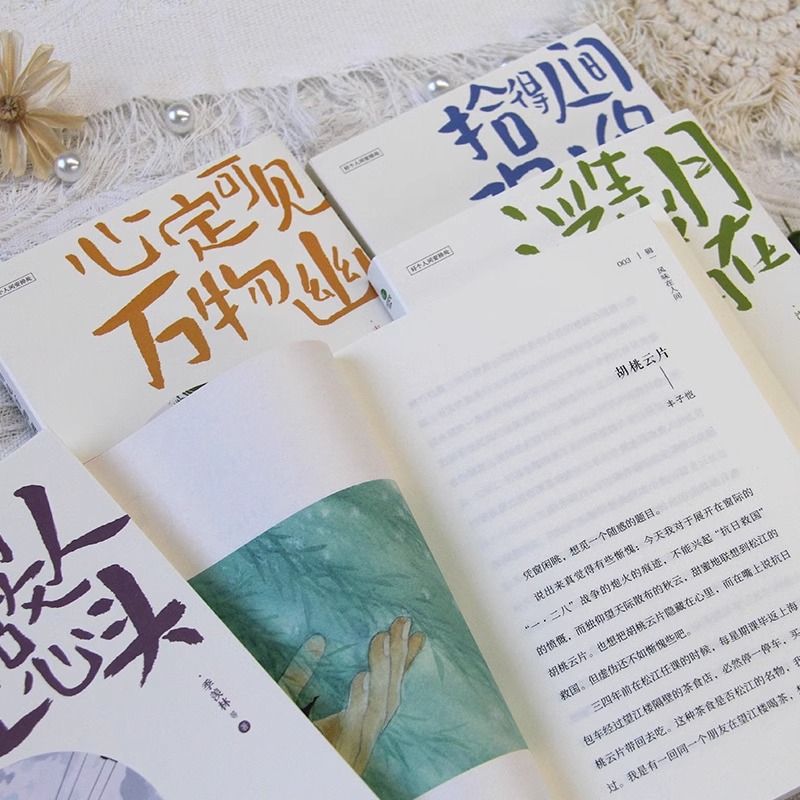 心定可见
万物幽
好个人间安静处
拾得人间
好个人间安静处
月
在
好个人间安静处
人
心头
季羡林 等 著
003
辑一
风味在人间
胡桃云片
丰子恺
凭窗闲眺，想觅一个随感的题目。
说出来真觉得有些惭愧：今天我对于展开在窗际的
“一·二八”战争的炮火的痕迹，不能兴起“抗日救国”
的愤慨，而独仰望天际散布的秋云，甜蜜地联想到松江的
胡桃云片。也想把胡桃云片隐藏在心里，而在嘴上说抗日
救国。但虚伪还不如惭愧些吧。
三四年前在松江任课的时候，每星期课毕返上海
包车经过望江楼隔壁的茶食店，必然停一停车，买
桃云片带回去吃。这种茶食是否松江的名物，我
过。我是有一回同一个朋友在望江楼喝茶，